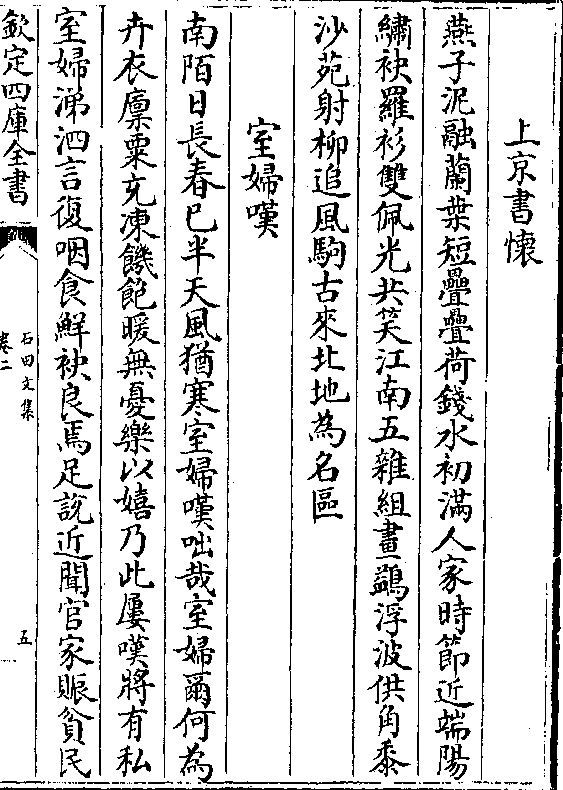 上京書懷
燕子泥融蘭葉短疊疊荷錢水初滿人家時節近端陽
繡袂羅衫雙佩光共笑江南五雜組畫鷁浮波供角黍
沙苑射柳追風駒古來北地為名區
室婦嘆
南陌日長春已半天風猶寒室婦嘆咄哉室婦爾何為
卉衣廪粟充凍饑飽暖無憂樂以嬉乃此屢嘆將有私
室婦涕泗言復咽食鮮袂良焉足說近聞官家賑貧民
欽定四庫全書
石田文集
卷二
五